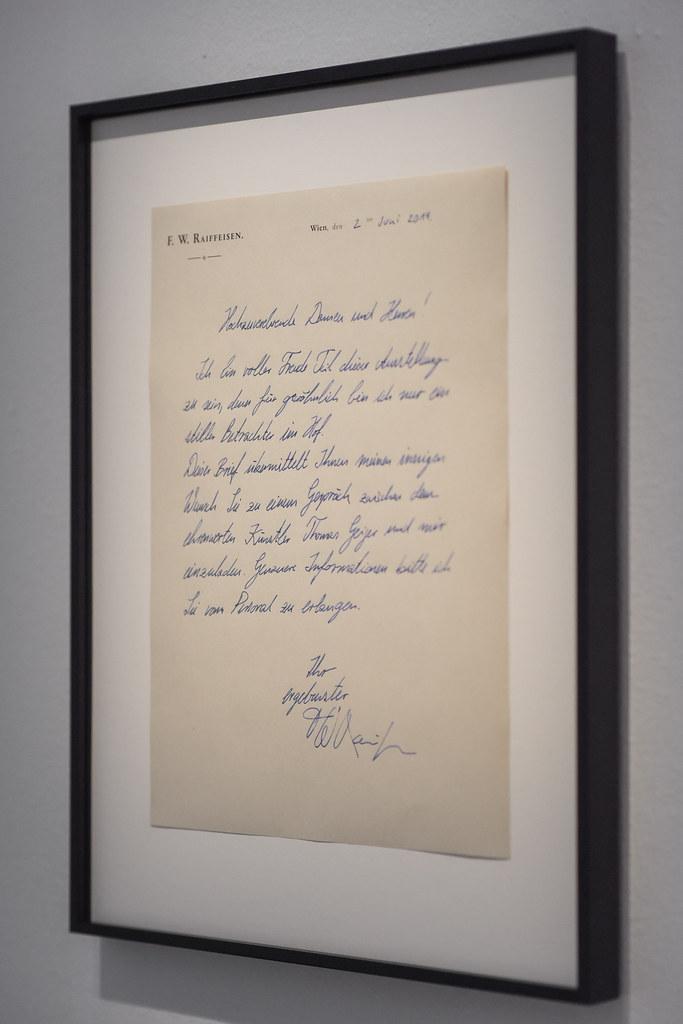 F. W. RAIFFEISEN.
Wien, den 2ten Juni 2019.
Hochzuverehrende Damen und Herren!
Ich bin voller Freude Teil dieser Ausstellung
zu sein, denn für gewöhnlich bin ich nur ein
stiller Betrachter im Hof.
Dieser Brief übermittelt Ihnen meinen innigen
Wunsch Sie zu einem Gespräch zwischen dem
ehrenwerten Künstler Thomas Geiger und mir
einzuladen. Genauere Informationen bitte ich
Sie vom Personal zu erlangen.
Ihr
ergebenster